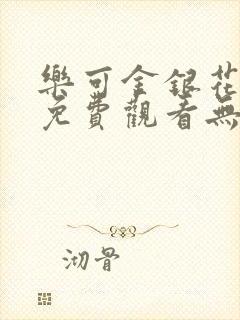 樂可金銀花
免費觀看無
沏骨